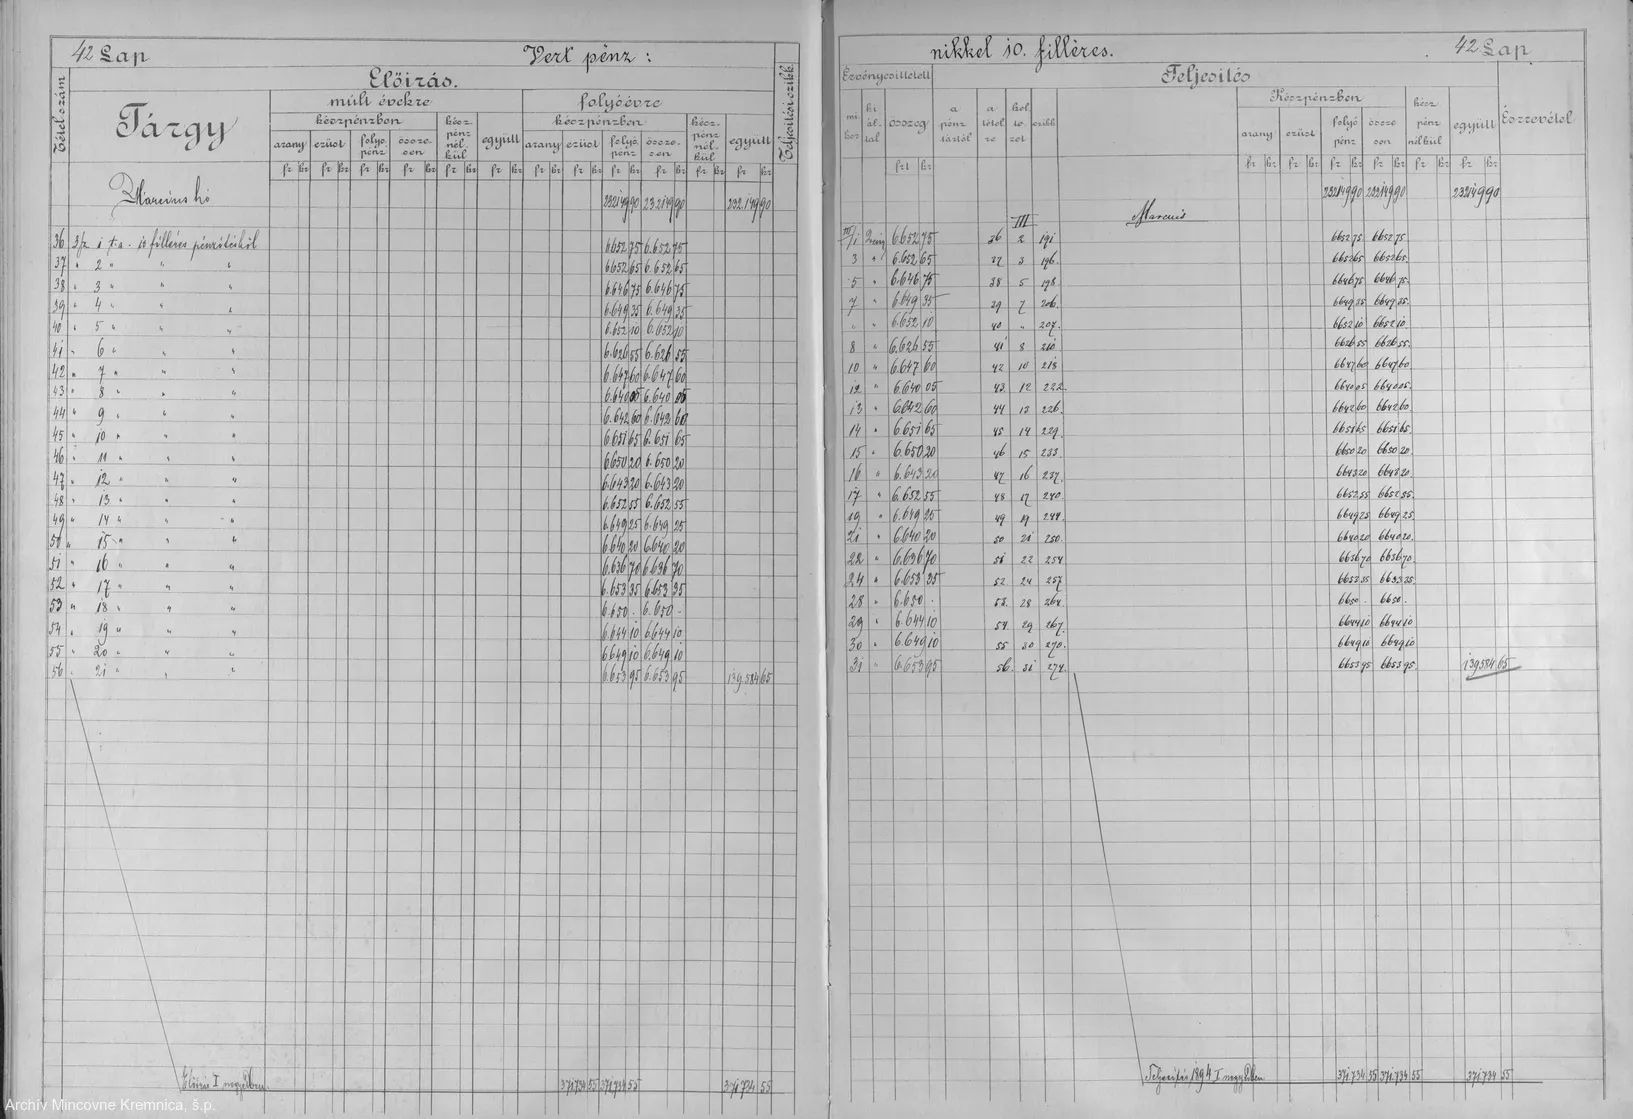 42 Lap
Vert pénz :
Előirás.
Tétel szám
Tárgy
múlt évekre
folyóévre
készpénzben
kész- pénz nél- kül
együtt
készpénzben
kész- pénz nél- kül
együtt
Teljesitési czikk
arany ezüst folyó pénz össze- sen
arany ezüst folyó pénz össze- sen
fr kr fr kr fr kr fr kr fr kr fr kr fr kr fr kr fr kr fr kr fr kr fr kr
Marcius hó 232149 90 232149 90 232.149 90
36 3/x 1 t.a. 10 filléres pénzitésből 6652 75 6.652 75
37 " 2 " " " 6652 65 6.652 65
38 " 3 " " " 6.646 75 6.646 75
39 " 4 " " " 6.649 35 6.649 35
40 " 5 " " " 6.652 10 6.652 10
41 " 6 " " " 6.626 55 6.626 55
42 " 7 " " " 6.647 60 6.647 60
43 " 8 " " " 6.640 05 6.640 05
44 " 9 " " " 6.642 60 6.642 60
45 " 10 " " " 6651 65 6.651 65
46 " 11 " " " 6.650 20 6.650 20
47 " 12 " " " 6.643 20 6.643 20
48 " 13 " " " 6.652 55 6.652 55
49 " 14 " " " 6.649 25 6.649 25
50 " 15 " " " 6640 20 6.640 20
51 " 16 " " " 6.636 70 6.636 70
52 " 17 " " " 6.653 35 6.653 35
53 " 18 " " " 6.650 - 6.650 -
54 " 19 " " " 6.644 10 6.644 10
55 " 20 " " " 6649 10 6.649 10
56 " 21 " " " 6.653 95 6.653 95 139.584 65
Előirás I negyedben 371734 55 371734 55 371734 55
nikkel 10. filléres.
42 Lap
Érvényesittetett
Teljesités
Észrevétel
mi kor
ki ál- tal
összeg
a pénz tártól
a tétel re
hol to- zot
czikk
Készpénzben
kész pénz nélkül
együtt
arany ezüst folyó pénz össze sen
frt kr
fr kr fr kr fr kr fr kr fr kr fr kr
232149 90 232149 90 232149 90
III Marcius
1 6.652 75 36 2 191 6652 75 6652 75
3 " 6.652 65 37 3 196. 6652 65 6652 65
5 " 6.646 75 38 5 198 6646 75 6646 75
7 " 6.649 35 39 7 206. 6649 35 6649 35
" " 6.652 10 40 " 207. 6652 10 6652 10
8 " 6.626 55 41 8 210 6626 55 6626 55
10 " 6.647 60 42 10 218 6647 60 6647 60
12 " 6.640 05 43 12 222. 6640 05 6640 05
13 " 6.642 60 44 13 226. 6642 60 6642 60
14 " 6.651 65 45 14 229. 6651 65 6651 65
15 " 6.650 20 46 15 233. 6650 20 6650 20
16 " 6.643 20 47 16 237. 6643 20 6643 20
17 " 6.652 55 48 17 240. 6652 55 6652 55
19 " 6.649 25 49 19 244. 6649 25 6649 25
21 " 6.640 20 50 21 250. 6640 20 6640 20
22 " 6.636 70 51 22 254 6636 70 6636 70
24 " 6.653 35 52 24 257 6653 35 6653 35
28 " 6.650 - 53. 28 264 6650 - 6650 -
29 " 6.644 10 54 29 267. 6644 10 6644 10
30 " 6.649 10 55 30 270. 6649 10 6649 10
31 " 6.653 95 56. 31 274. 6653 95 6653 95 139584 65
Teljesités 1894 I negyedben 371734 55 371734 55 371734 55
Archív Mincovne Kremnica, š.p.